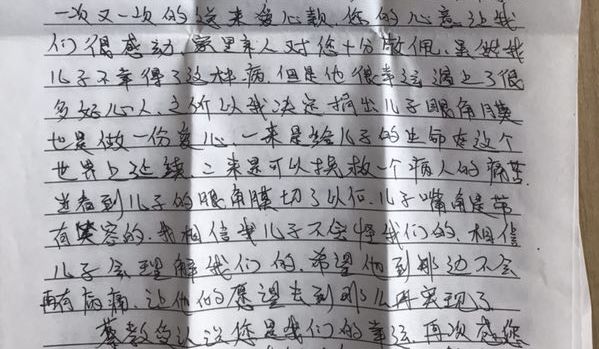 一次又一次的送来爱心款,您的心意让我
们很感动,家里亲人对您十分敬佩,虽然我
儿子不幸得了这样病,但是他很幸运遇上了很
多好心人,之所以我决定捐出儿子眼角膜
也是做一份爱心,一来是给儿子的生命在这个
世界上延续,二来是可以挽救一个病人的痛苦.
当看到儿子的眼角膜切了以后,儿子嘴角是带
有笑容的,我相信我儿子不会怪我们的,相信
儿子会理解我们的,希望他到那边不会
再有病痛,让他的愿望去到那儿再实现了
蔡教授认识您是我们的幸运,再次感您